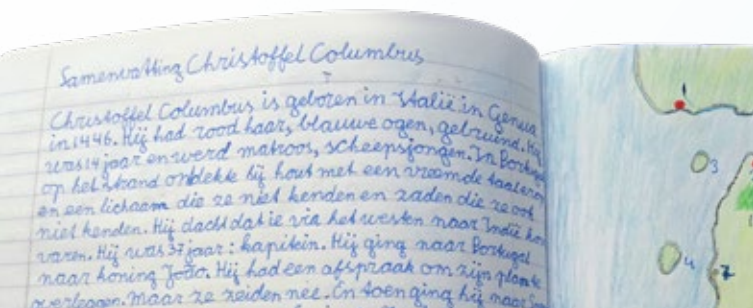 Samenvatting Christoffel Columbus
Christoffel Columbus is geboren in Italië in Genua
in 1446. Hij had rood haar, blauwe ogen, gebruind. Hij
was 14 jaar en werd matroos, scheepsjongen. In Portugal
op het strand ontdekte hij hout met een vreemde taal erop
en een lichaam die ze niet kenden en zaden die ze ook
niet kenden. Hij dacht dat ie via het westen naar Indië kon
varen. Hij was 37 jaar: kapitein. Hij ging naar Portugal
naar koning João. Hij had een afspraak om zijn plan te
overleggen. Maar ze zeiden nee. En toen ging hij naar
1
3
4
7